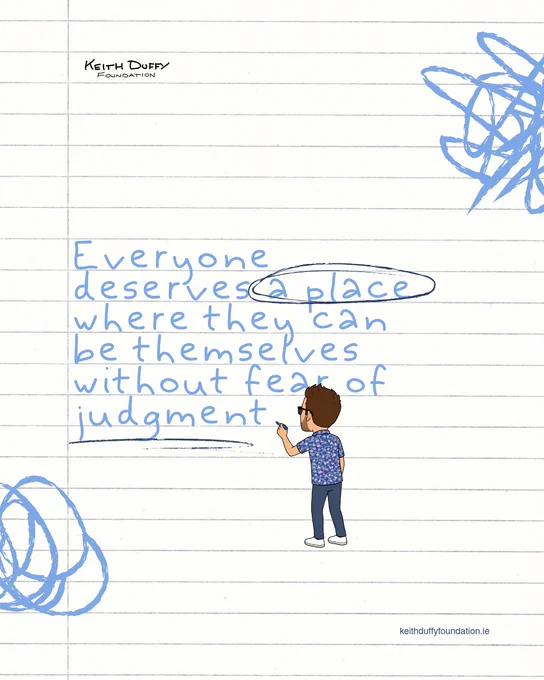 Keith Duffy
Foundation
Everyone
deserves a place
where they can
be themselves
without fear of
judgment
keithduffyfoundation.ie